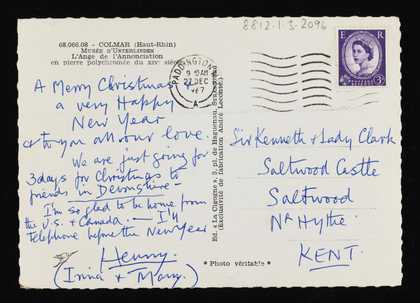 8812.1.3.2096
68.066.08 - COLMAR (Haut-Rhin)
MUSÉE D'UNTERLINDEN
L'Ange de l'Annonciation
en pierre polychromée du XIVe siècle
PADDINGTON
9 30 AM
22 DEC
1967
A
E R
3D
A Merry Christmas
a very Happy
New Year
& to you all our love.
We are just going for
3 days for Christmas to
friends in Devonshire -
I'm so glad to be home from
the U.S. & Canada. - I'll
telephone before the New Year
Henry
(Irina & Mary)
Ed. « La Cigogne », 3, pl. de Haguenau, Strasbourg
(Exclusivité de fabrication André Leconte)
* Photo véritable *
Sir Kenneth & Lady Clark
Saltwood Castle
Saltwood
Nr Hythe
KENT.